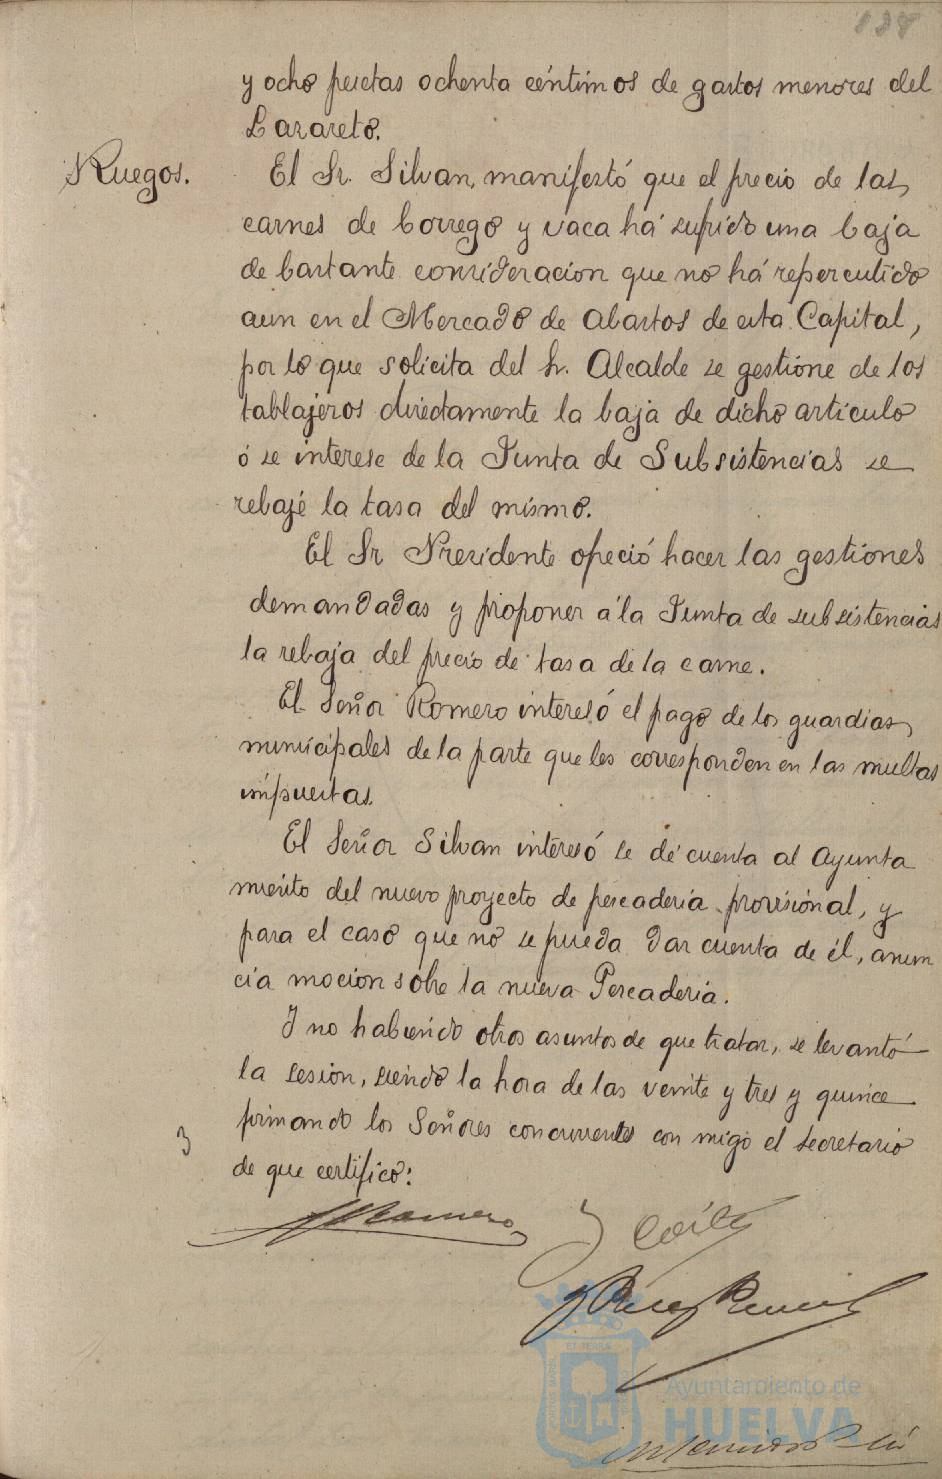 138
y ocho pesetas ochenta céntimos de gastos menores del
Lazareto.
Ruegos.
El Sr. Silvan, manifestó que el precio de las
carnes de borrego y vaca há sufrido una baja
de bastante consideracion que no há repercutido
aun en el Mercado de Abastos de esta Capital,
por lo que solicita del Sr. Alcalde se gestione de los
tablajeros directamente la baja de dicho articulo
ó se interese de la Junta de Subsistencias se
rebaje la tasa del mismo.
El Sr Presidente ofreció hacer las gestiones
demandadas y proponer á la Junta de subsistencias
la rebaja del precio de tasa de la carne.
El Señor Romero interesó el pago de los guardias
municipales de la parte que les corresponden en las multas
impuestas.
El Señor Silvan interesó se dé cuenta al Ayunta
miento del nuevo proyecto de pescaderia provisional, y
para el caso que no se pueda dar cuenta de él, anun
cia mocion sobre la nueva Pescaderia.
Y no habiendo otros asuntos de que tratar, se levantó
la sesion, siendo la hora de las veinte y tres y quince
firmando los Señores concurrentes con migo el secretario
de que certifico:
3
Romero
Ayuntamiento de
HUELVA